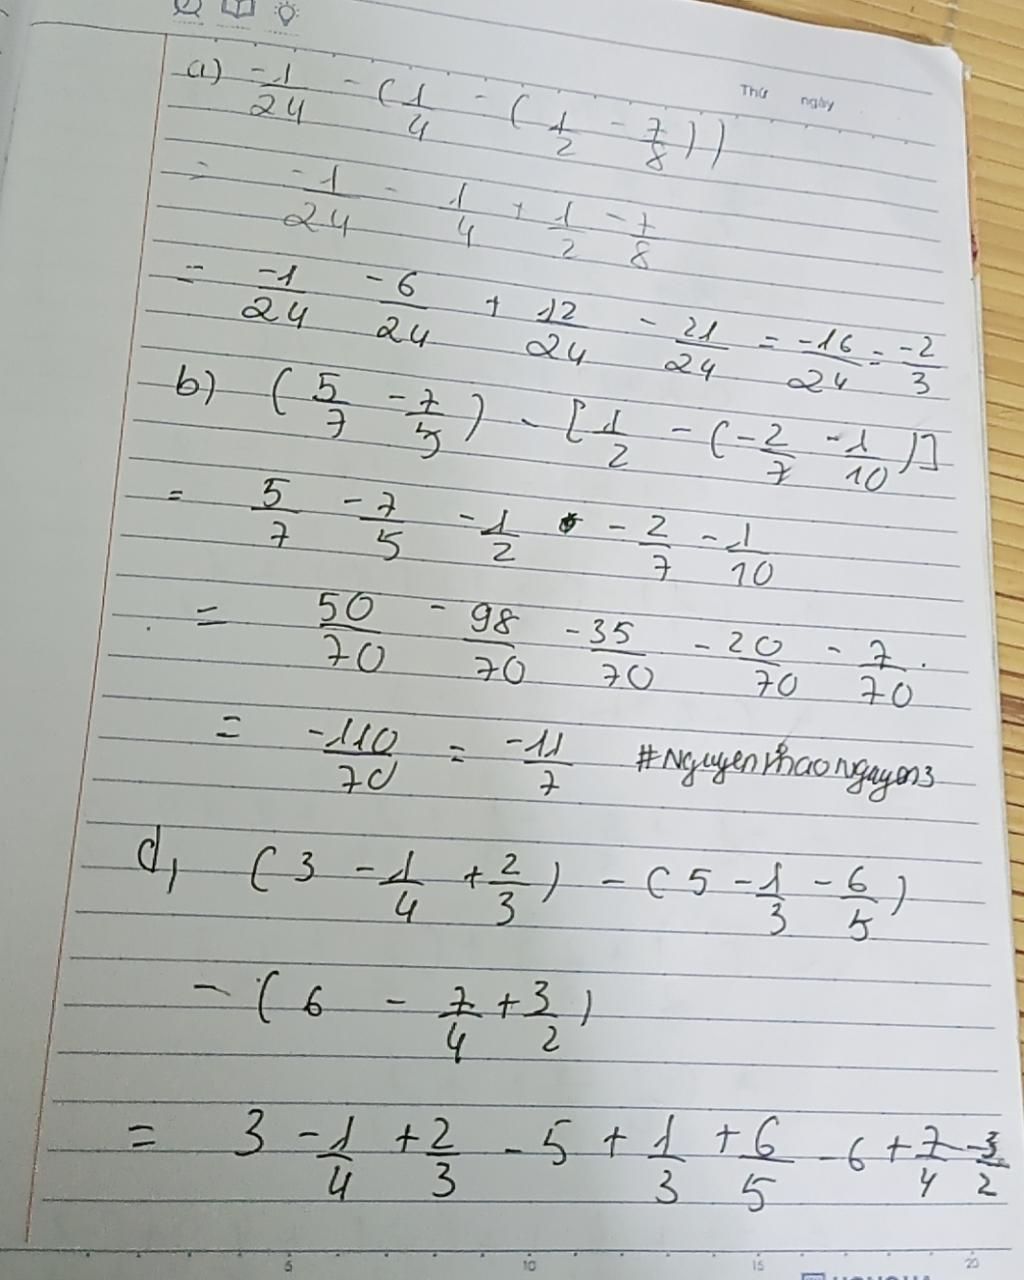 Thứ ngày
a) -1/24 - (1/4 - (1/2 - 7/8))
= -1/24 - 1/4 + 1/2 - 7/8
= -1/24 - 6/24 + 12/24 - 21/24 = -16/24 = -2/3
b) (5/7 - 7/5) - [1/2 - (-2/7 - 1/10)]
= 5/7 - 7/5 - 1/2 - 2/7 - 1/10
= 50/70 - 98/70 - 35/70 - 20/70 - 7/70.
= -110/70 = -11/7 #Nguyenthaonguyen3
d, (3 - 1/4 + 2/3) - (5 - 1/3 - 6/5)
- (6 - 7/4 + 3/2)
= 3 - 1/4 + 2/3 - 5 + 1/3 + 6/5 - 6 + 7/4 - 3/2
5 10 15 20